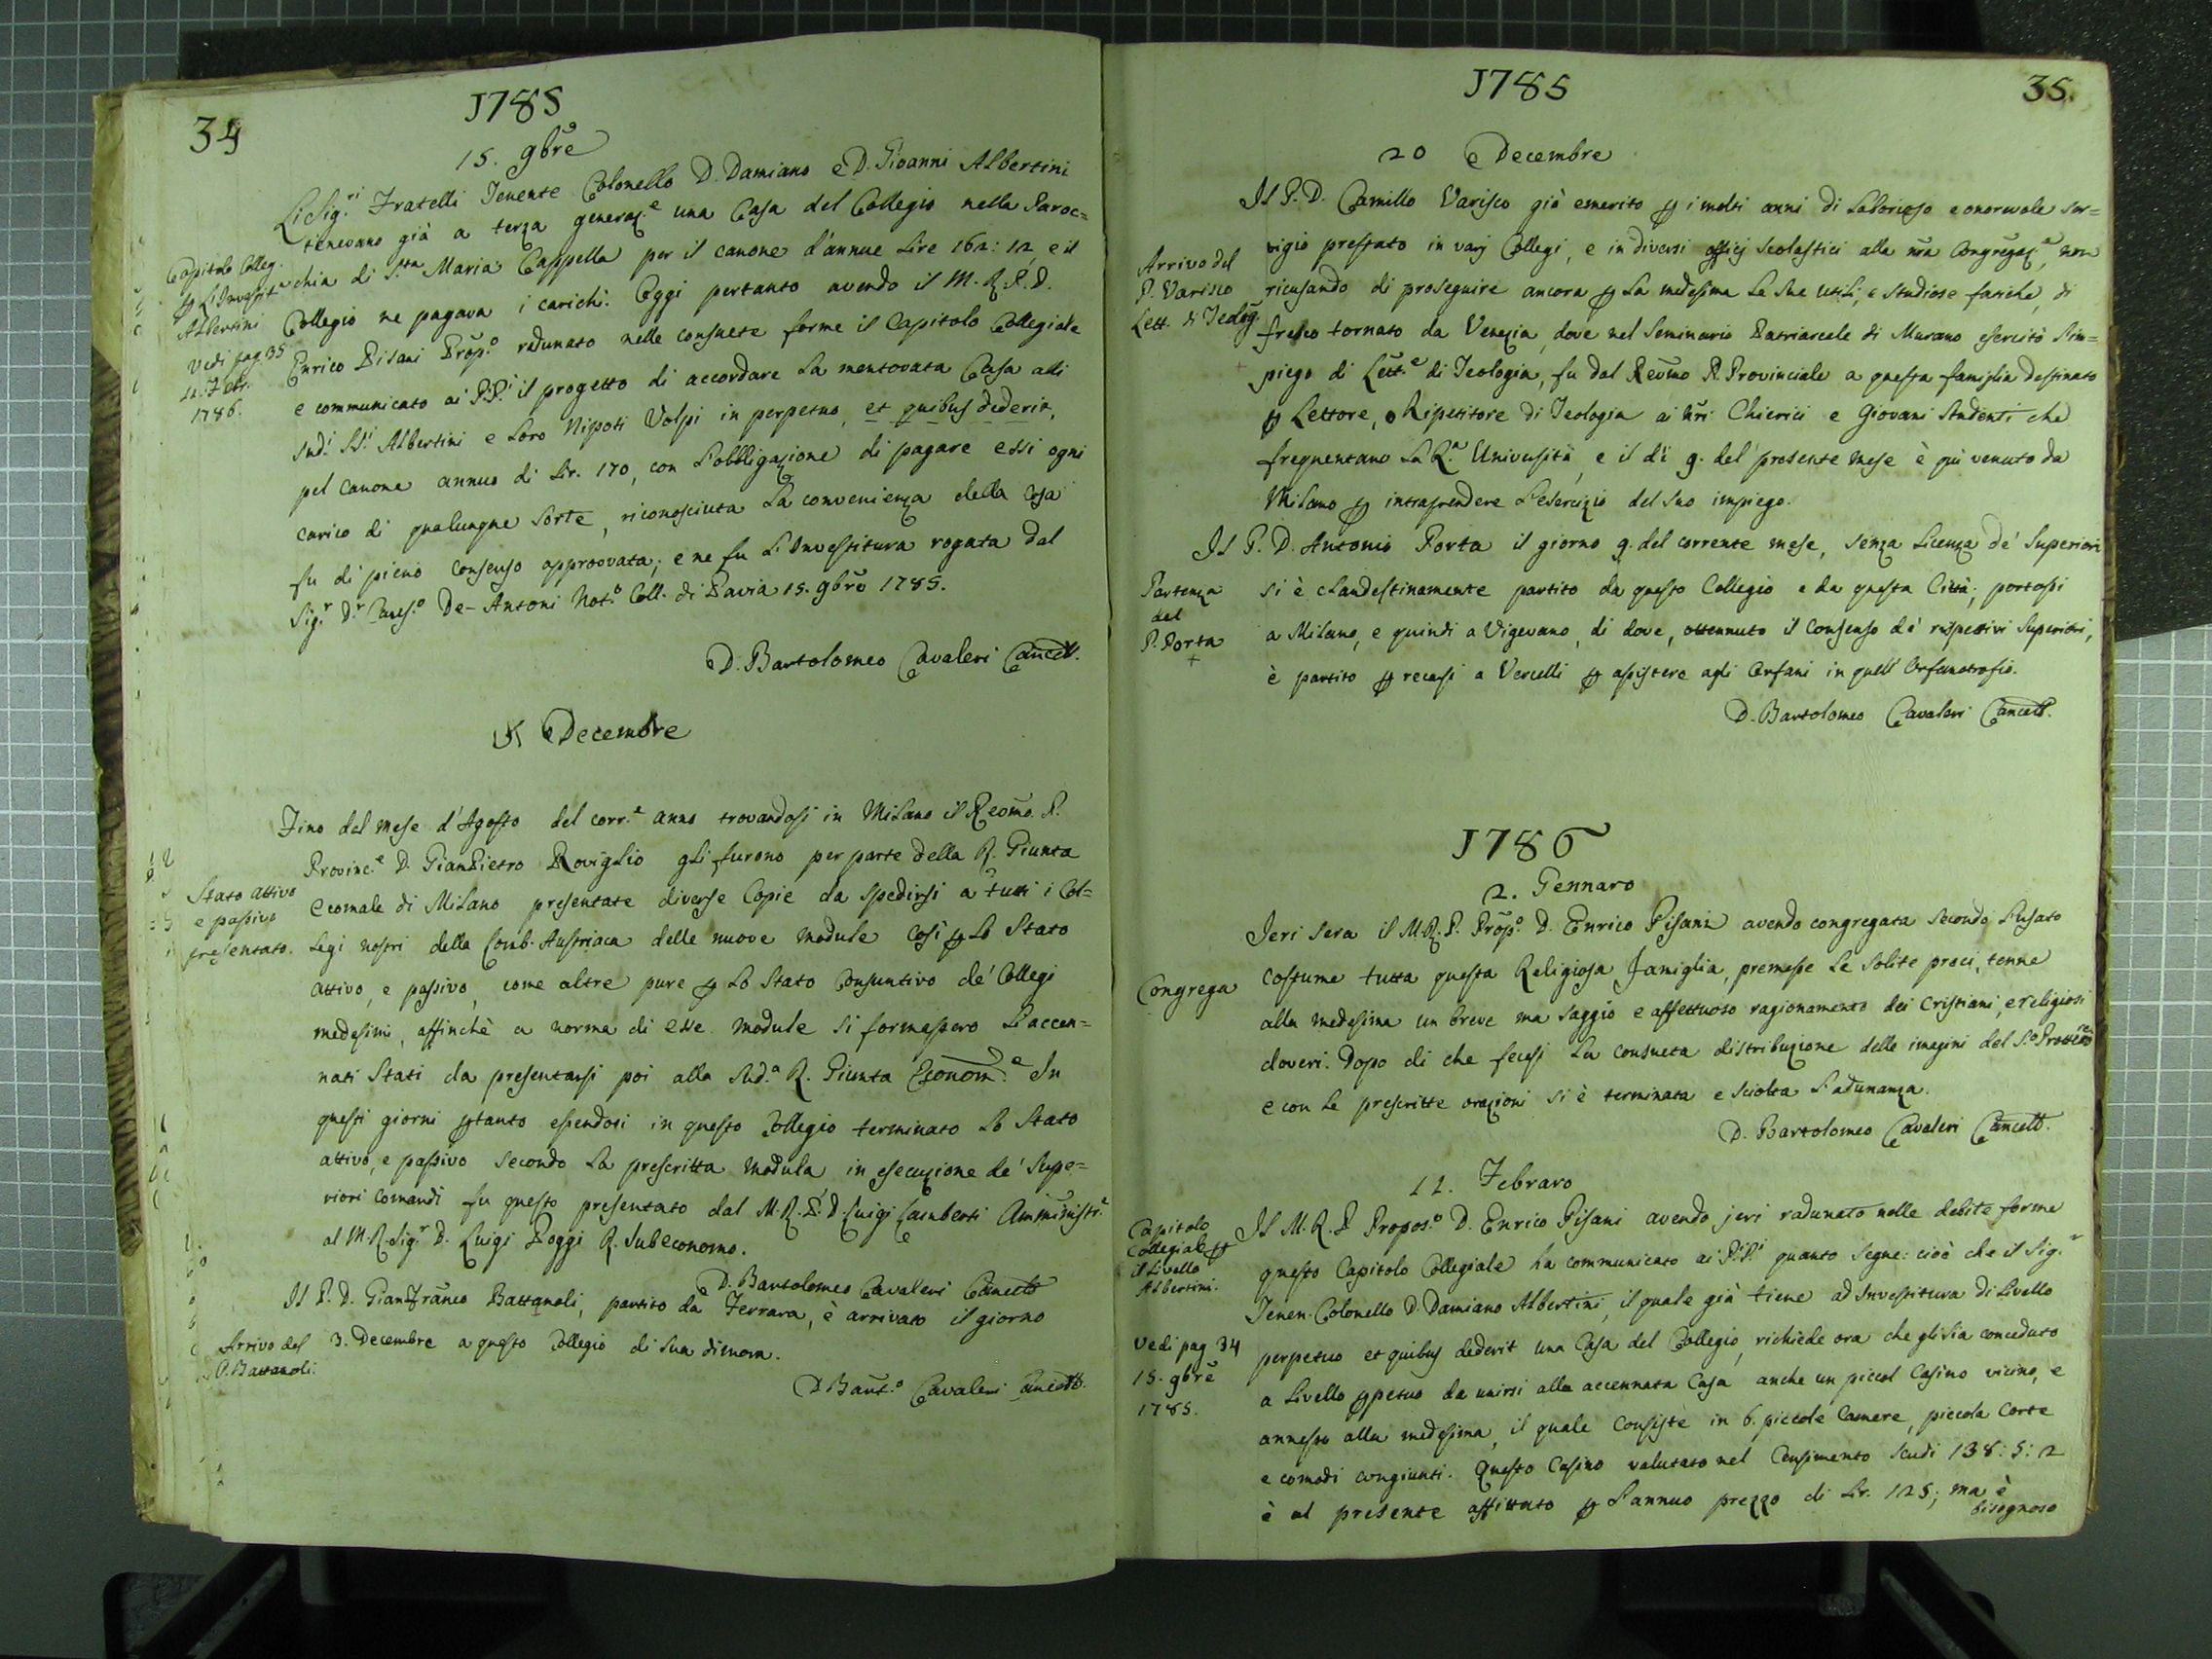 34
1785
15. 9bre
Li Sig.ri Fratelli Tenente Colonello D. Damiano e D. Gioanni Albertini
tenevano già a terza generaz.e una Casa del Collegio nella Paroc=
chia di S.ta Maria Cappella per il canone d'annue Lire 162: 12, e il
Collegio ne pagava i carichi. Oggi pertanto avendo il M. R. P. D.
Enrico Pisani Prop.o radunato nelle consuete forme il Capitolo Collegiale
e communicato ai P.P.i il progetto di accordare la mentovata Casa alli
sud.i SS.i Albertini e loro Nipoti Volpi in perpetuo, et quibus dederit,
pel canone annuo di Lir. 170, con l'obbligazione di pagare essi ogni
carico di qualunque sorte, riconosciuta la convenienza della cosa
fu di pieno consenso approovata; e ne fu l'Investitura rogata dal
Sig.r D.r Cares.o De-Antoni Not.o Coll. di Pavia 15. 9bre 1785.
D. Bartolomeo Cavaleri Cancell.
Capitolo Colleg.
per l'Investit.a
Albertini
Vedi pag. 35
11. Febr.
1786.
15 Decembre
Fino dal mese d'Agosto del corr.e anno trovandosi in Milano il Reomo P.
Provinc.e D. GianPietro Roviglio gli furono per parte della R. Giunta
Ecomale di Milano presentate diverse Copie da spedirsi a tutti i Col=
legi nostri della Lomb. Austriaca delle nuove module così per lo Stato
attivo, e passivo, come altre pure per lo Stato Consuntivo de' Collegi
medesimi, affinchè a norma di esse module si formassero l'accen=
nati Stati da presentarsi poi alla Sud.a R. Giunta Econom.e In
questi giorni pertanto essendosi in questo Collegio terminato lo Stato
attivo, e passivo secondo la prescritta modula in esecuzione de' Supe=
riori comandi fu questo presentato dal M. R. P. D. Luigi Lamberti Amministr.e
al M. R. Sig.r D. Luigi Poggi R. Subeconomo.
D. Bartolomeo Cavaleri Cancell.
Stato attivo
e passivo
presentato.
Il P. D. GianFranco Battanoli, partito da Ferrara, è arrivato il giorno
3. Decembre a questo Collegio di sua dimora.
D Bart.o Cavaleri Cancell.
Arrivo del
P. Battanoli.
1785
35.
20 Decembre
Il P. D. Camillo Varisco già emerito per i molti anni di laborioso e onorevole ser=
vigio prestato in varj Collegi, e in diversi officj scolastici alla nra Congregaz.e, non
ricusando di proseguire ancora per la medesima le sue utili, e studiose fatiche, di
fresco tornato da Venezia, dove nel Seminario Patriarcale di Murano esercitò l'im=
piego di Lett.e di Teologia, fu dal Reomo P. Provinciale a questa famiglia destinato
per Lettore, o Ripetitore di Teologia ai nri Chierici e Giovani studenti che
frequentano la R.a Università, e il dì 9. del presente mese è quì venuto da
Milano per intraprendere l'esercizio del suo impiego.
Arrivo del
P. Varisco
Lett. di Teolog.
Il P. D. Antonio Porta il giorno 9. del corrente mese, senza Licenza de' Superiori
si è clandestinamente partito da questo Collegio e da questa Città; portossi
a Milano, e quindi a Vigevano, di dove, ottenuto il consenso de' rispettivi Superiori,
è partito per recarsi a Vercelli per assistere agli Orfani in quell' Orfanotrofio.
D. Bartolomeo Cavaleri Cancell.
Partenza
del
P. Porta
+
1786
2. Gennaro
Jeri sera il M. R. P. Prop.o D. Enrico Pisani avendo congregata secondo l'usato
costume tutta questa Religiosa famiglia, premesse le solite preci, tenne
alla medesima un breve ma saggio e affettuoso ragionamento dei cristiani, e religiosi
doveri. Dopo di che fecesi la consueta distribuzione delle imagini del S.o Protett.re
e con le prescritte orazioni si è terminata e sciolta l'adunanza.
D. Bartolomeo Cavaleri Cancell.
Congrega
11. Febraro
Il M. R. P Propos.o D. Enrico Pisani avendo jeri radunato nelle debite forme
questo Capitolo Collegiale ha communicato ai P.P.i quanto segue: cioè che il Sig.r
Tenen. Colonello D. Damiano Albertini, il quale già tiene ad Investitura di Livello
perpetuo et quibus dederit una Casa del Collegio, richiede ora che gli sia conceduto
a Livello perpetuo da unirsi alla accennata Casa anche un piccol Casino vicino, e
annesso alla medesima, il quale consiste in 6. piccole Camere, piccola Corte
e comodi congiunti. Questo Casino valutato nel Censimento scudi 138: 5: 2
è al presente affittato per l'annuo prezzo di Lir. 125; ma è
bisognoso
Capitolo
Collegiale per
il Livello
Albertini.
Vedi pag 34
15. 9bre
1785.